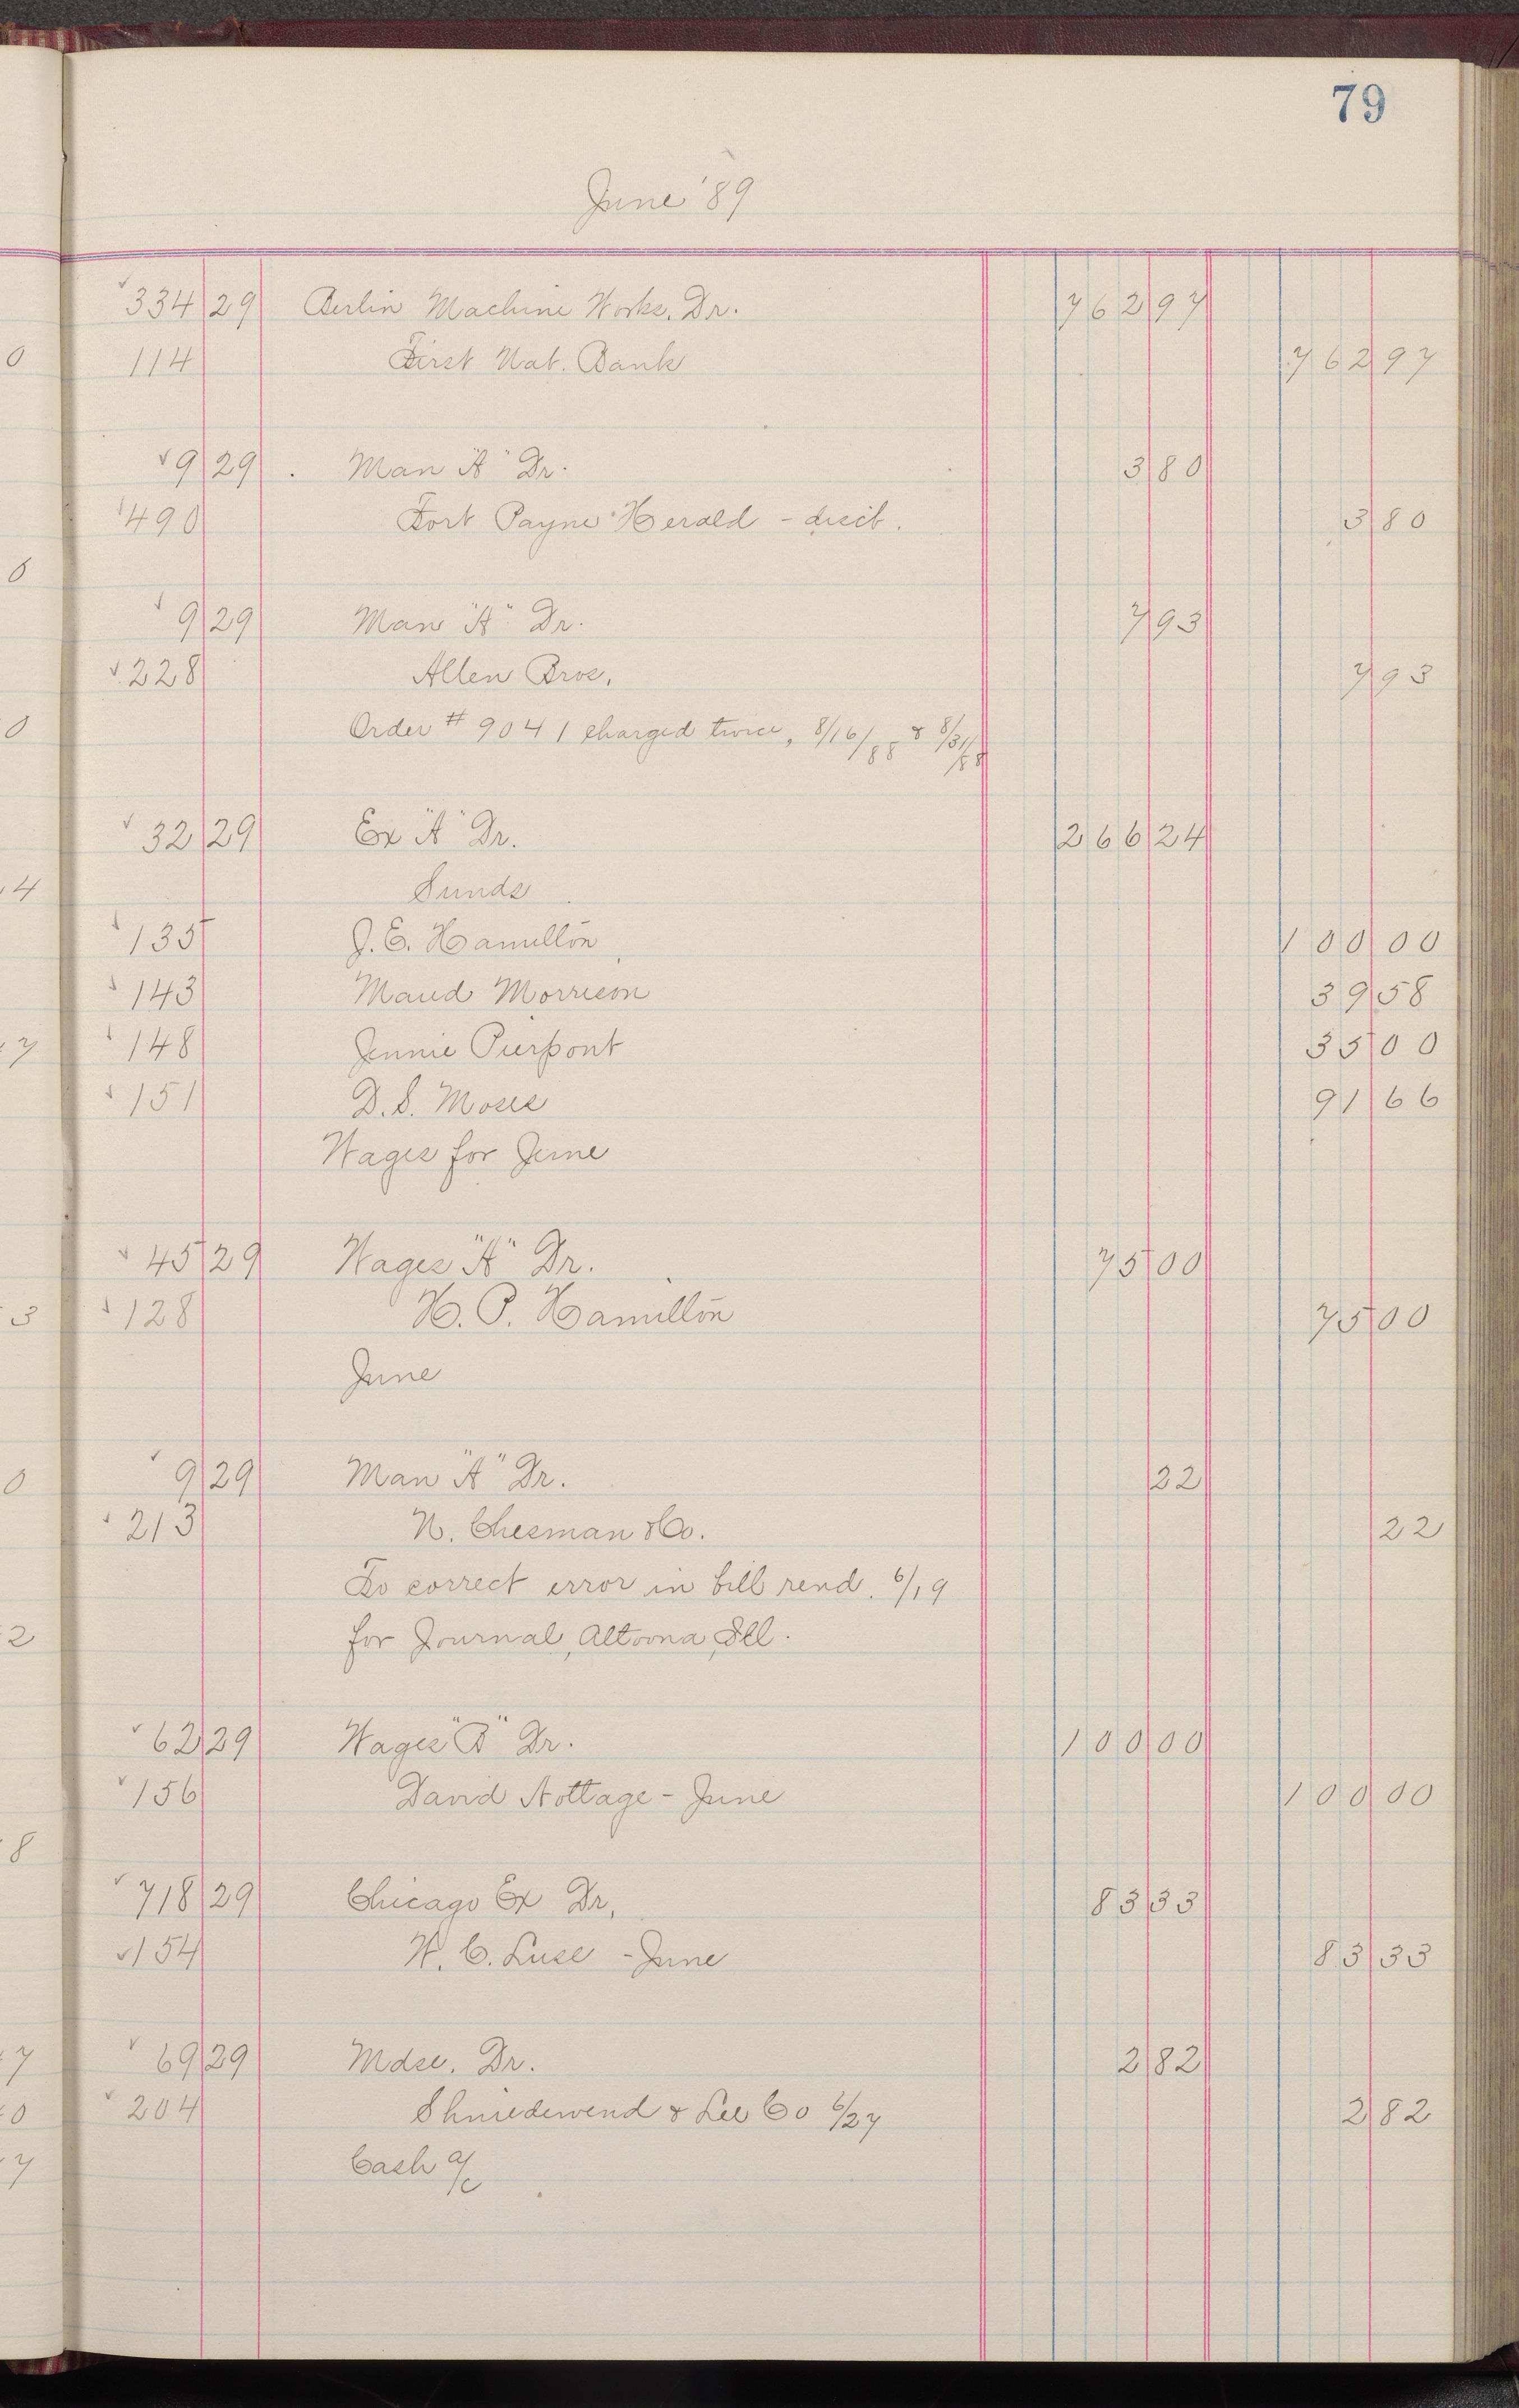 79
June '89
334 29 Berlin Machine Works, Dr. 762 97
114 First Nat. Bank 762 97
9 29 Man "A" Dr. 3 80
490 Fort Payne Herald - disct. 3 80
9 29 Man "A" Dr. 7 93
228 Allen Bros. 7 93
Order # 9041 charged twice, 8/16/88 & 8/31/88
32 29 Ex "A" Dr. 266 24
Sunds
135 J. E. Hamilton 100 00
143 Maud Morrison 39 58
148 Jennie Pierpont 35 00
151 D. S. Moses 91 66
Wages for June
45 29 Wages "A" Dr. 75 00
128 H. P. Hamilton 75 00
June
9 29 Man "A" Dr. 22
213 N. Chesman & Co. 22
To correct error in bill rend. 6/19
for Journal, Altoona, Ill.
62 29 Wages "B" Dr. 100 00
156 David Nottage - June 100 00
718 29 Chicago Ex Dr, 83 33
154 W. C. Luse - June 83 33
69 29 Mdse. Dr. 2 82
204 Shniedewend & Lee Co 6/27 2 82
Cash a/c